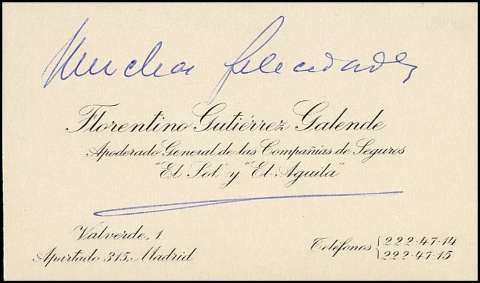 Muchas felicidades
Florentino Gutiérrez Galende
Apoderado General de las Compañias de Seguros
"El Sol" y "El Aguila"
Valverde, 1
Apartado 315, Madrid
Teléfonos { 222-47-14
222-47-15